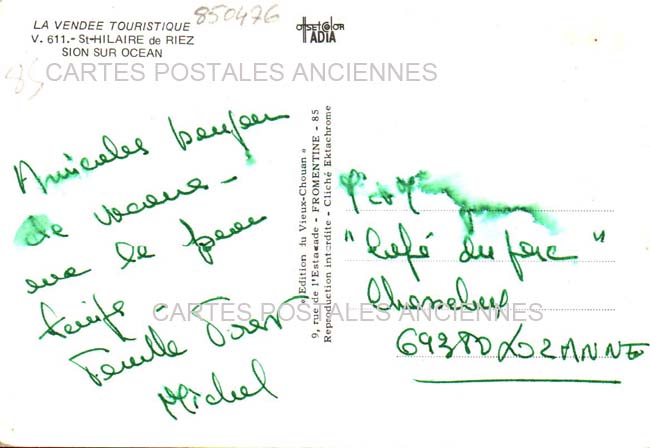 LA VENDEE TOURISTIQUE
V. 611.- St-HILAIRE de RIEZ
SION SUR OCEAN
850476
offset color
IADIA
85
CARTES POSTALES ANCIENNES
Amicales pensées
de vacances -
avec le beau
temps -
Famille
Michel
« Edition du Vieux-Chouan »
9, rue de l'Estacade - FROMENTINE - 85
Reproduction interdite - Cliché Ektachrome
Mr et Mme
"Café du parc"
69380 LOZANNE
CARTES POSTALES ANCIENNES